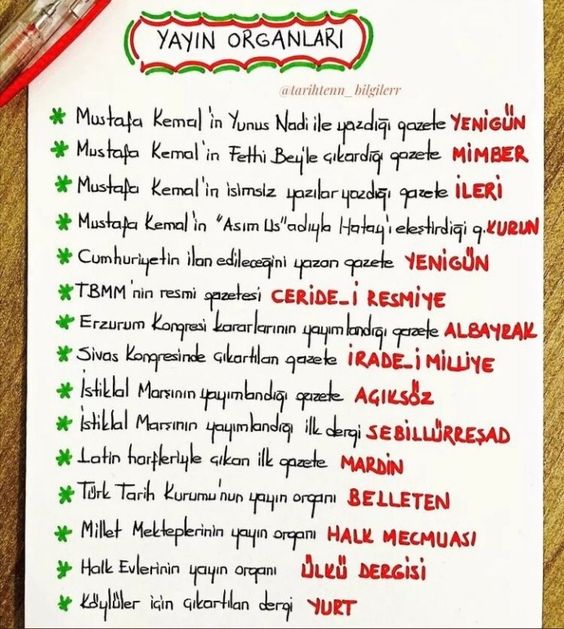 YAYIN ORGANLARI
@tarihtenn_bilgilerr
* Mustafa Kemal'in Yunus Nadi ile yazdığı gazete YENİGÜN
* Mustafa Kemal'in Fethi Bey'le çıkardığı gazete MİMBER
* Mustafa Kemal'in isimsiz yazılar yazdığı gazete İLERİ
* Mustafa Kemal'in "Asım Us" adıyla Hatay'ı eleştirdiği g. KURUN
* Cumhuriyetin ilan edileceğini yazan gazete YENİGÜN
* TBMM'nin resmi gazetesi CERİDE_İ RESMİYE
* Erzurum Kongresi kararlarının yayımlandığı gazete ALBAYRAK
* Sivas Kongresinde çıkartılan gazete İRADE_İ MİLLİYE
* İstiklal Marşının yayımlandığı gazete AÇIKSÖZ
* İstiklal Marşının yayımlandığı ilk dergi SEBİLÜRREŞAD
* Latin harfleriyle çıkan ilk gazete MARDİN
* Türk Tarih Kurumu'nun yayın organı BELLETEN
* Millet Mekteplerinin yayın organı HALK MECMUASI
* Halk Evlerinin yayın organı ÜLKÜ DERGİSİ
* Köylüler için çıkartılan dergi YURT